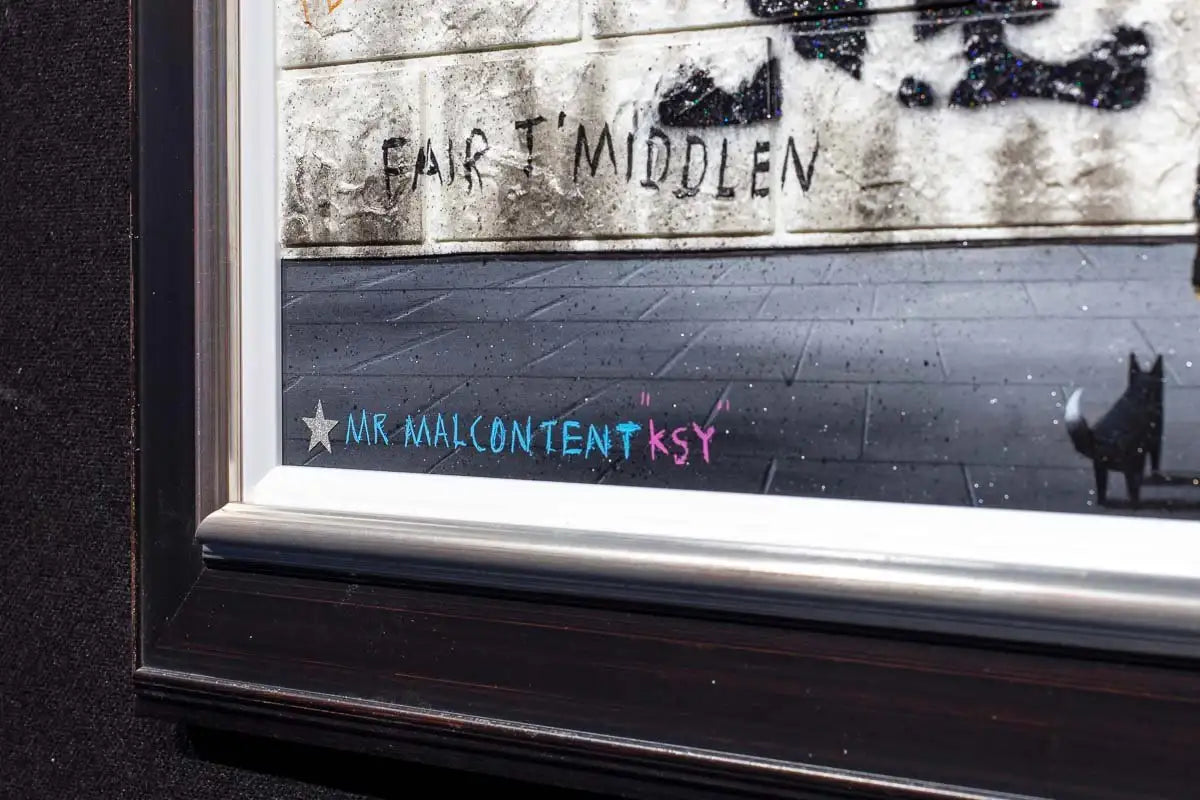 FAIR T'MIDDLEN
MR MALCONTENT "KSY"